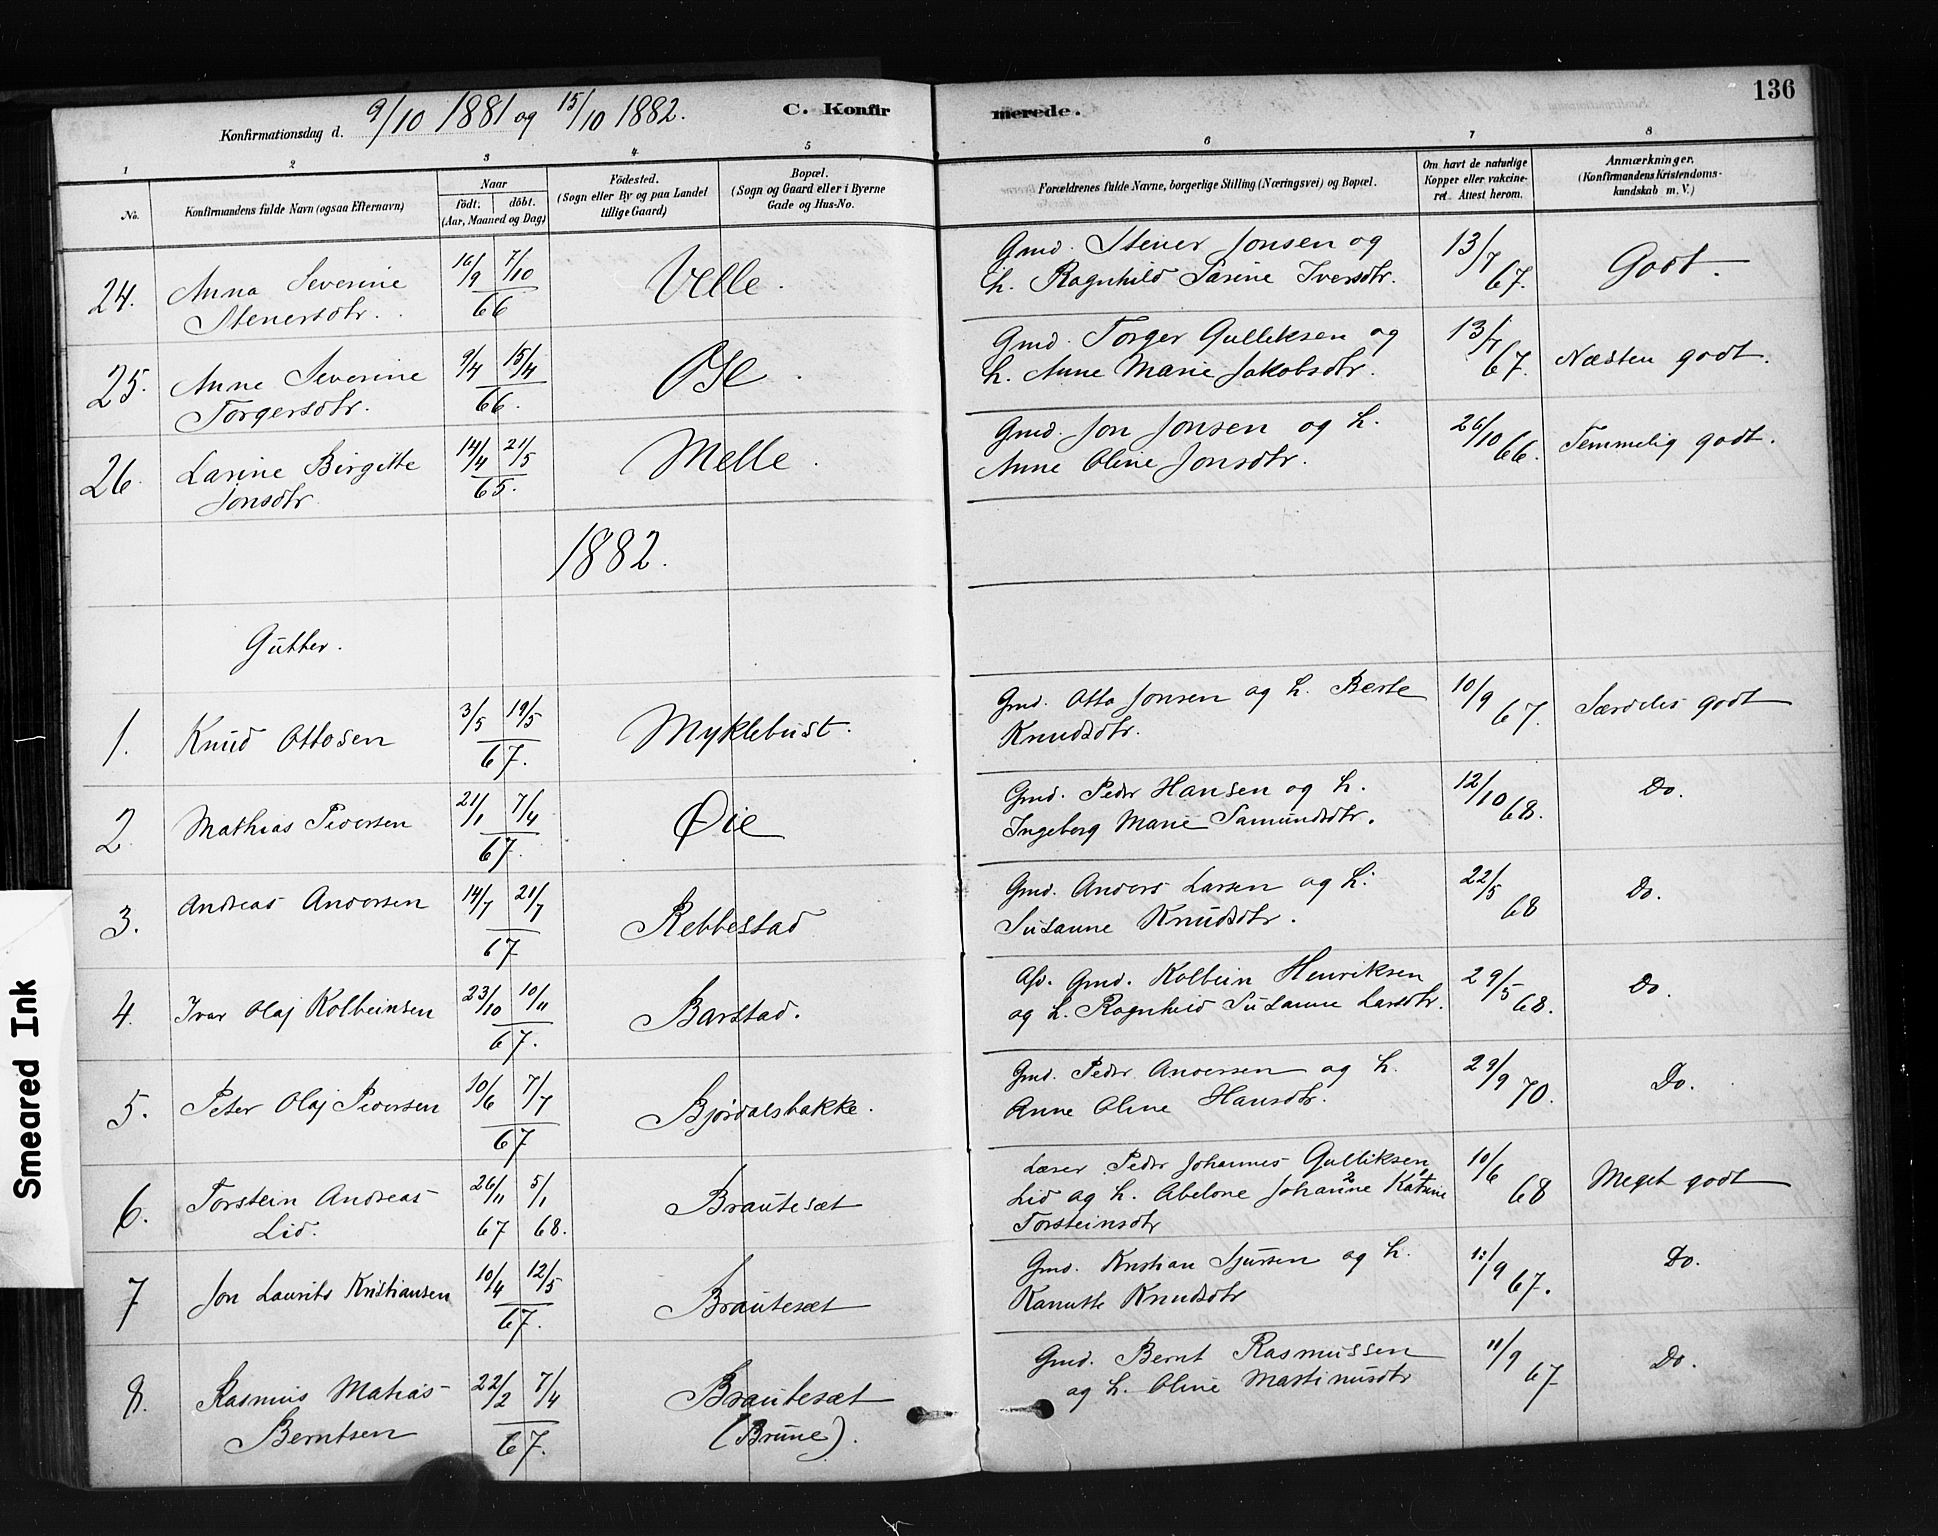 136
Konfirmationsdag d. 9/10 1881 og 15/10 1882. C. Konfir merede.
1 2 3 4 5 6 7 8
No. Konfirmandens fulde Navn (ogsaa Efternavn) Naar födt. döbt. (Aar, Maaned og Dag) Födested. (Sogn eller By og paa Landet tillige Gaard) Bopæl. (Sogn og Gaard eller i Byerne Gade og Hus-No. Forældrenes fulde Navne, borgerlige Stilling (Næringsvei) og Bopæl. Om havt de naturlige Kopper eller vakcineret. Attest herom. Anmærkninger. (Konfirmandens Kristendomskundskab m. V.)
24. Anna Severine 16/9 7/10 Velle. Gmd. Stener Jonsen og 13/7 67. Godt.
Stenersdtr. 66 h. Ragnhild Sarine Iversdtr.
25. Anne Severine 9/4 15/4 Øse. Gmd. Torger Gulliksen og 13/7 67. Næsten godt.
Torgersdtr. 66. h. Anne Marie Jakobsdtr.
26. Larine Birgitte 14/4 21/5 Melle. Gmd. Jon Jonsen og h. 26/10 66. Temmelig godt.
Jonsdtr 65. Anne Oline Jonsdtr.
1882.
Gutter.
1. Knud Ottosen 3/5 19/5 67. Myklebust. Gmd. Otto Jonsen og h. Berte 10/9 67. Særdeles godt
Knudsdtr.
2. Mathias Pedersen 21/1 7/4 67. Øie Gmd. Peder Hansen og h. 12/10 68. Do.
Ingeborg Marie Samundsdtr.
3. Andreas Andersen 14/7 21/7 67 Rebbestad Gmd. Anders Larsen og h. 22/5 68 Do.
Susanne Knudsdtr.
4. Ivar Olaj Kolbeinsen 23/10 10/11 67. Barstad. Afd. Gmd. Kolbein Henriksen 29/5 68. Do.
og h. Ragnhild Susanne Larsdtr.
5. Peter Olaj Pedersen 10/6 7/7 67 Bjørdalsbakke. Gmd. Peder Andersen og h. 29/9 70. Do.
Anne Oline Hansdtr.
6. Torstein Andreas 26/11 5/1 Brautesæt Lærer Peder Johannes Gulliksen 10/6 68 Meget godt
Lid. 67 68. Lid og h. Abelone Johanne Katrine
Torsteinsdtr
7 Jon Laurits Kristiansen 10/4 12/5 67. Brautesæt Gmd. Kristian Sjursen og h. 13/9 67. Do.
Kanutte Knudsdtr
8. Rasmus Matias 22/2 7/4 Brautesæt Gmd. Bernt Rasmussen 11/9 67 Do.
Berntsen 67. (Brune). og h. Oline Martinusdtr
Smeared Ink